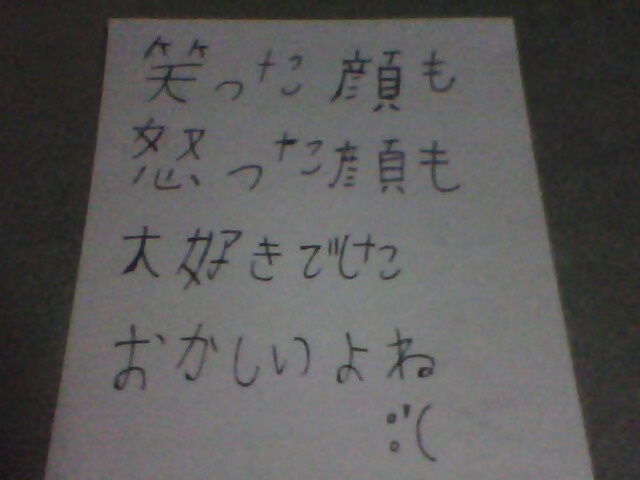 笑った顔も
怒った顔も
大好きでした
おかしいよね
:'(